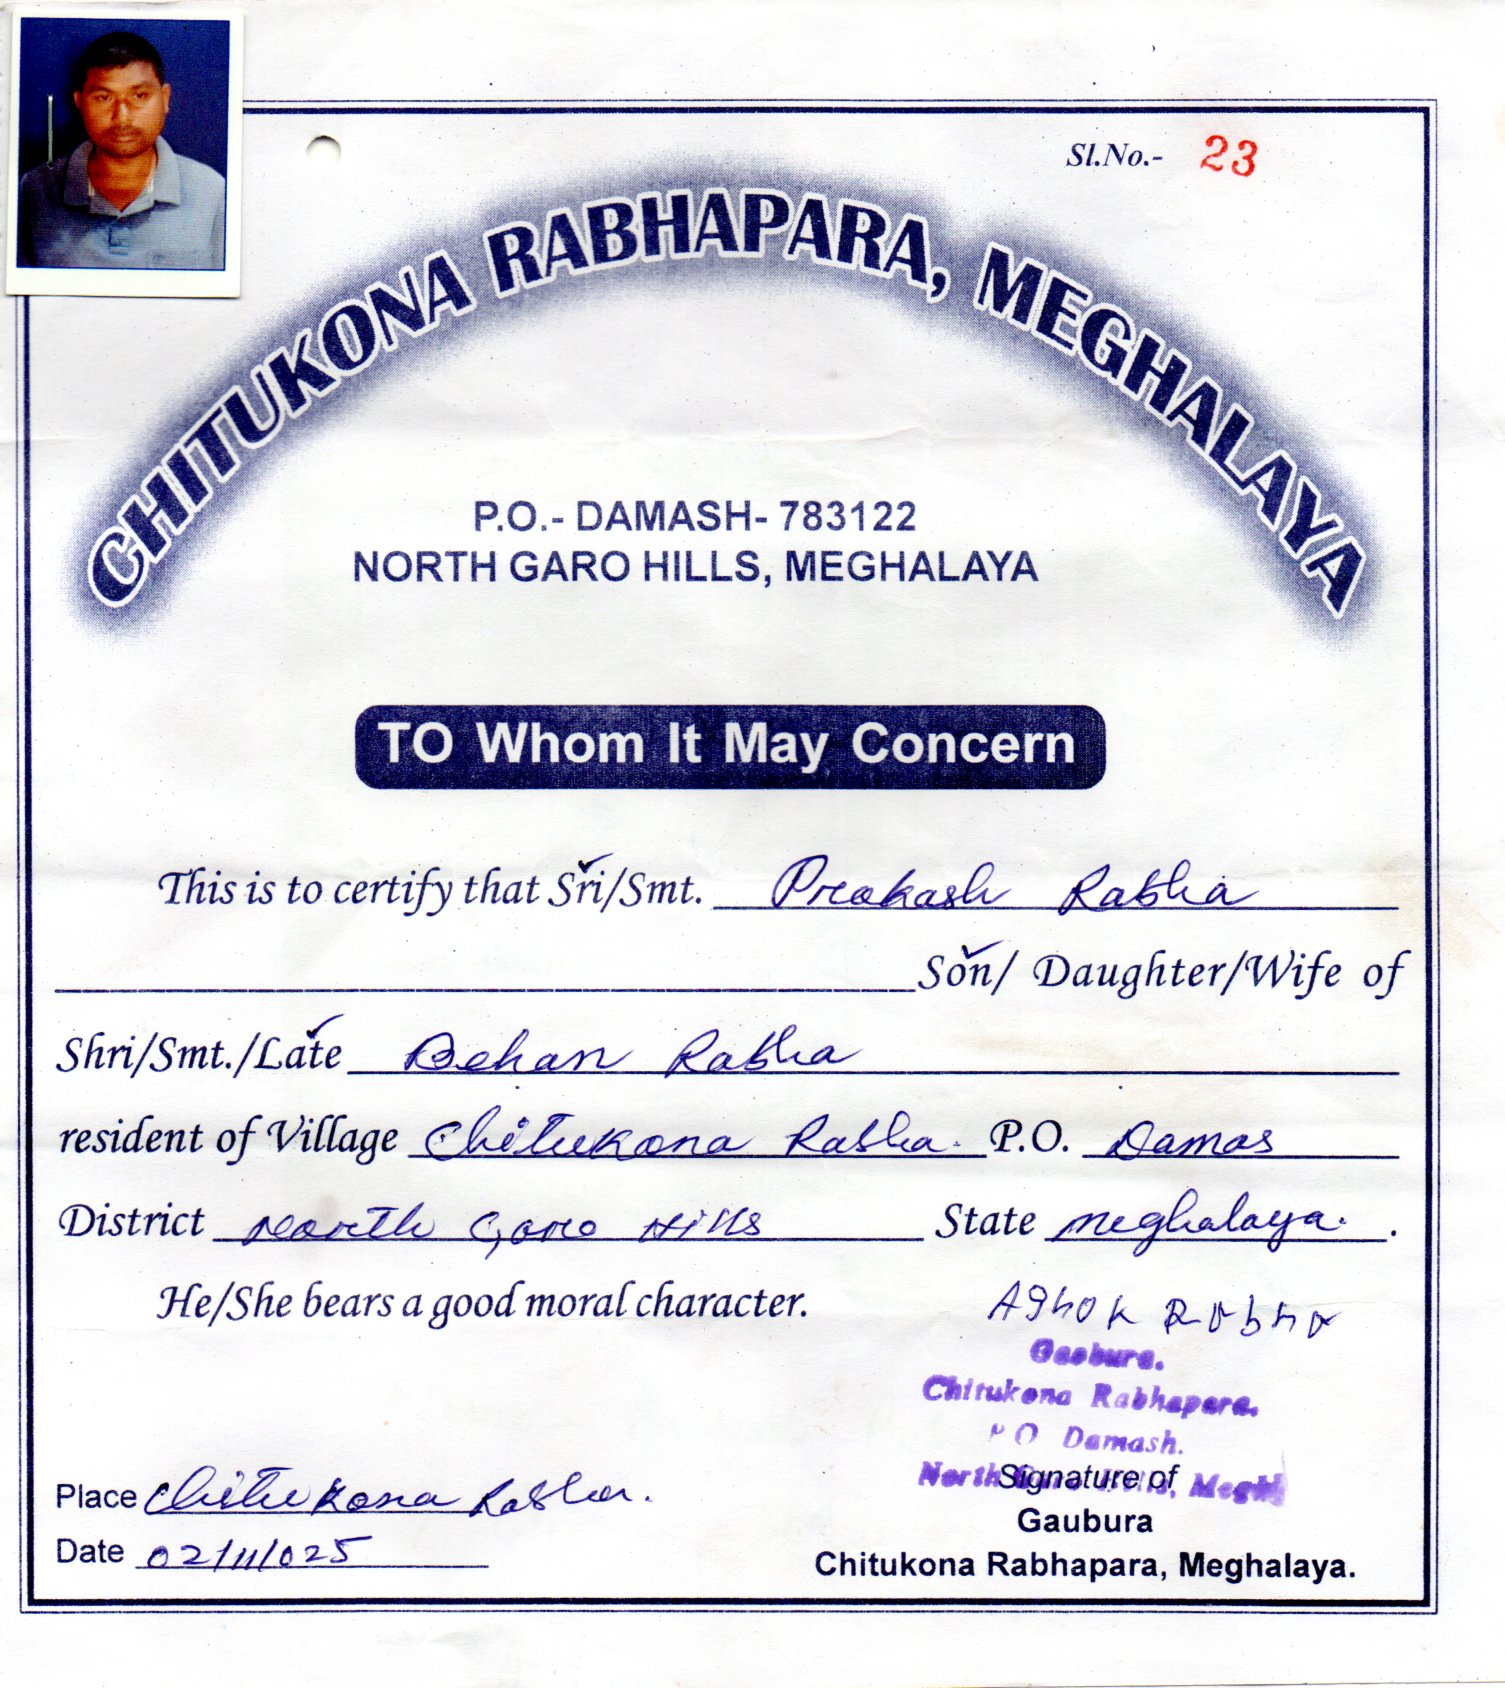 Sl.No.- 23
CHITUKONA RABHAPARA, MEGHALAYA
P.O.- DAMASH- 783122
NORTH GARO HILLS, MEGHALAYA
TO Whom It May Concern
This is to certify that Sri/Smt. Prakash Rabha
Son/ Daughter/Wife of
Shri/Smt./Late Behan Rabha
resident of Village Chitukona Rabha. P.O. Damas
District North Garo Hills State Meghalaya.
He/She bears a good moral character.
Ashok Rabha
Gaobura.
Chitukona Rabhapara.
P O Damash.
North Garo Hills, Megh
Place Chitukona Rabha.
Date 02/11/025
Signature of
Gaubura
Chitukona Rabhapara, Meghalaya.